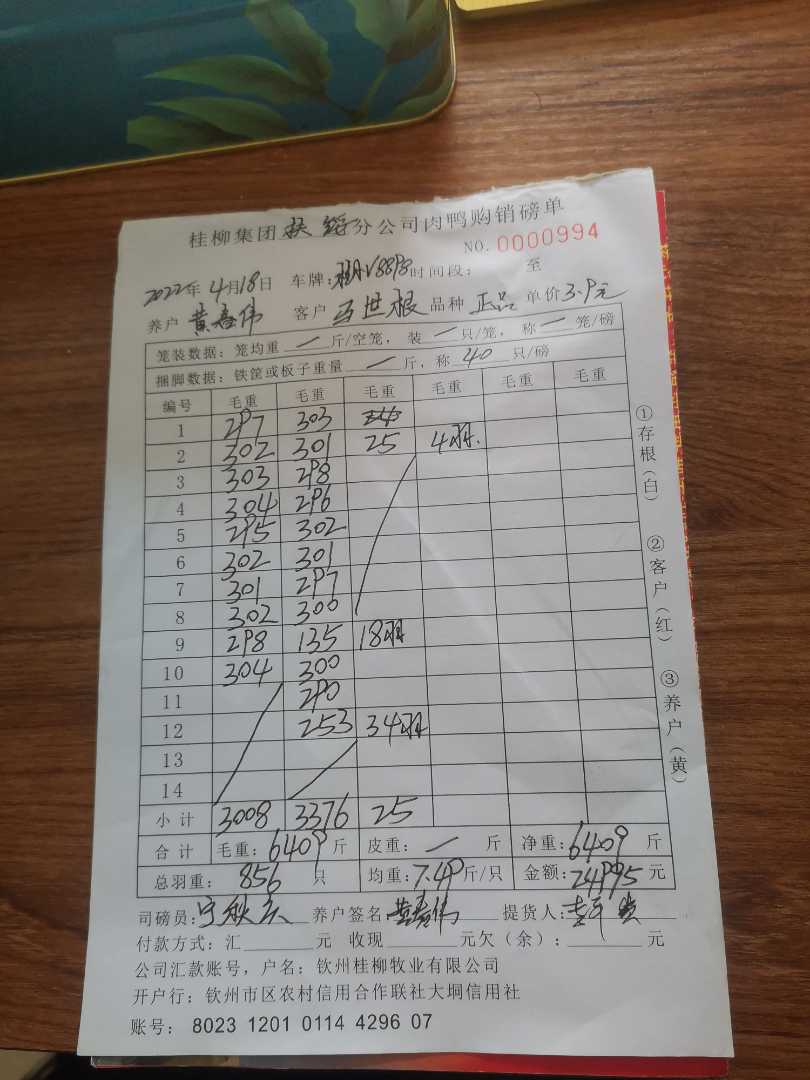 桂柳集团扶绥分公司肉鸭购销磅单
NO. 0000994
2022年4月18日 车牌: 时间段: 至
养户 黄春伟 客户 马世根 品种 正品 单价3.9元
笼装数据: 笼均重 — 斤/空笼, 装 — 只/笼, 称 — 笼/磅
捆脚数据: 铁筐或板子重量 — 斤, 称 40 只/磅
编号 毛重 毛重 毛重 毛重 毛重 毛重
1 297 303
2 302 301 25 4羽.
3 303 298
4 304 296
5 295 302
6 302 301
7 301 297
8 302 300
9 298 135 18羽
10 304 300
11 290
12 253 34羽
13
14
小计 3008 3376 25
合计 毛重: 6409 斤 皮重: — 斤 净重: 6409 斤
总羽重: 856 只 均重: 7.49 斤/只 金额: 24995 元
司磅员: 养户签名 黄春伟 提货人:
付款方式: 汇 元 收现 元欠(余): 元
公司汇款账号, 户名: 钦州桂柳牧业有限公司
开户行: 钦州市区农村信用合作联社大垌信用社
账号: 8023 1201 0114 4296 07
①存根(白)
②客户(红)
③养户(黄)